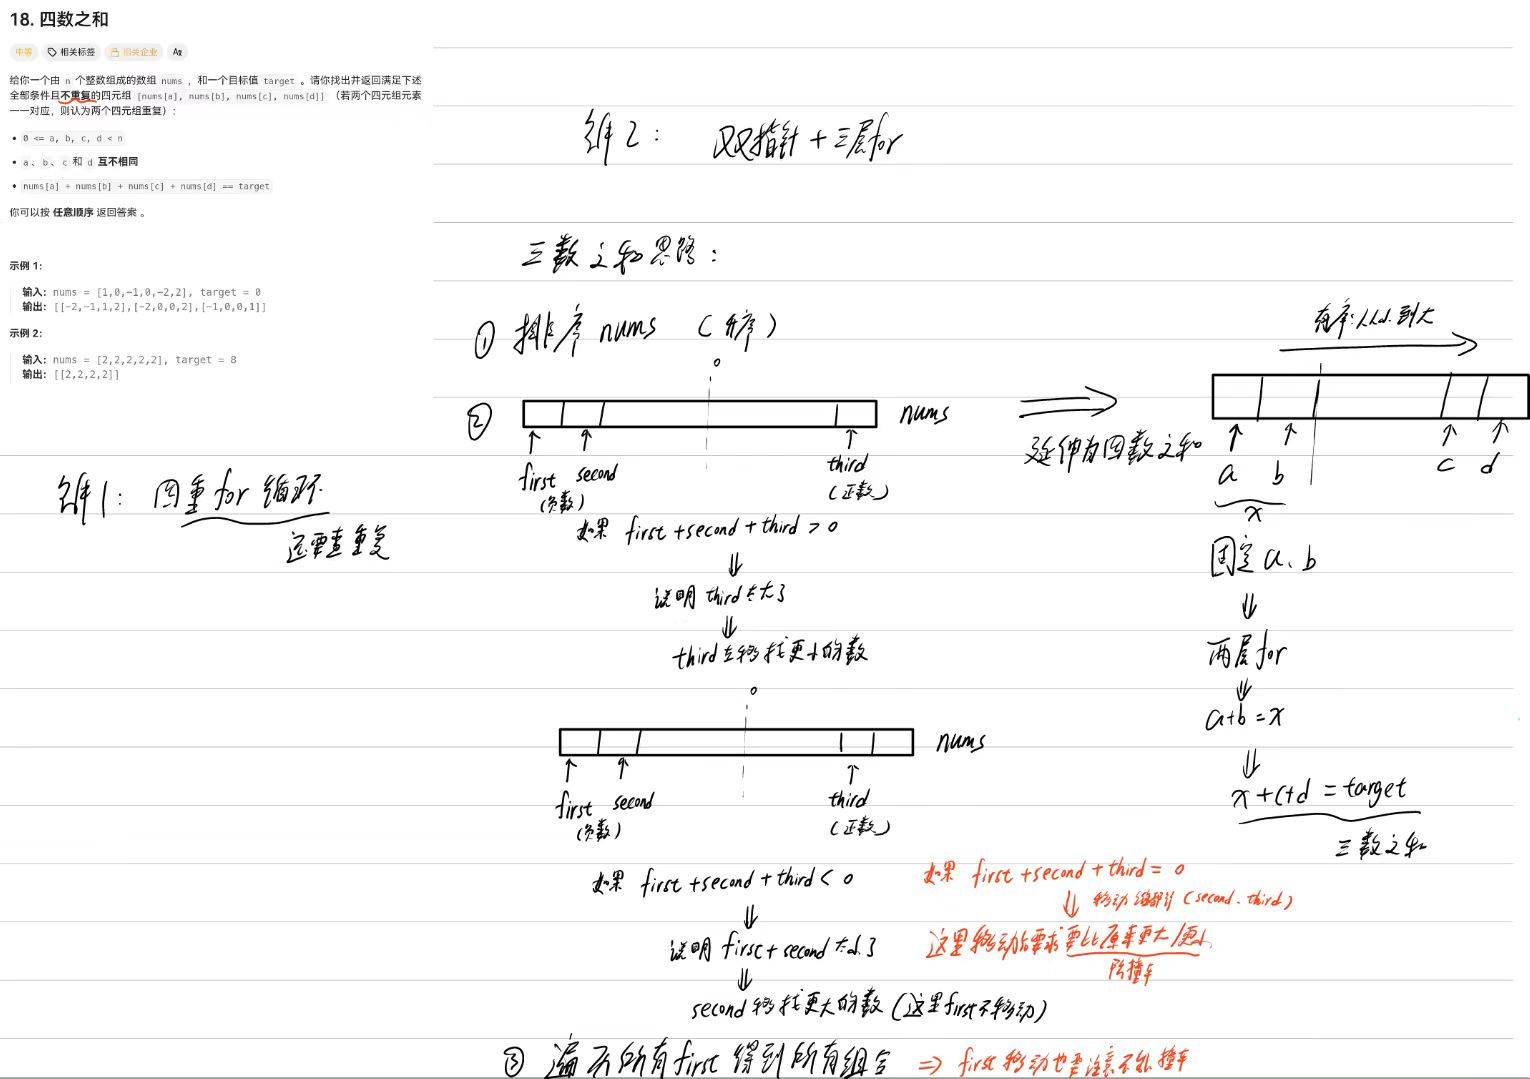 18. 四数之和
中等 相关标签 相关企业 Aあ
给你一个由 n 个整数组成的数组 nums ，和一个目标值 target 。请你找出并返回满足下述
全部条件且不重复的四元组 [nums[a], nums[b], nums[c], nums[d]] （若两个四元组元素
一一对应，则认为两个四元组重复）：
• 0 <= a, b, c, d < n
• a、b、c 和 d 互不相同
• nums[a] + nums[b] + nums[c] + nums[d] == target
你可以按 任意顺序 返回答案 。
示例 1：
输入：nums = [1,0,-1,0,-2,2], target = 0
输出：[[-2,-1,1,2],[-2,0,0,2],[-1,0,0,1]]
示例 2：
输入：nums = [2,2,2,2,2], target = 8
输出：[[2,2,2,2]]
1： 四重for循环
还要查重复
2： 双指针+三层for
三数之和思路：
① 排序nums （升序）
0
② nums
first second third
(负数) (正数)
如果 first+second+third>0
⇓
说明third太大了
⇓
third左移找更小的数
0
nums
first second third
(负数) (正数)
如果 first+second+third<0
⇓
说明first+second太小了
⇓
second移找更大的数(这里first不移动)
如果 first+second+third=0
⇓ 移动 (second、third)
这里移动后要求要比原来更大/更小
防撞车
③ 遍历所有first得到所有组合 ⇒ first移动也要注意不能撞车
⇒
延伸为四数之和
有序:从小到大
a b c d
x
固定a、b
⇓
两层for
⇓
a+b=x
⇓
x+c+d=target
三数之和